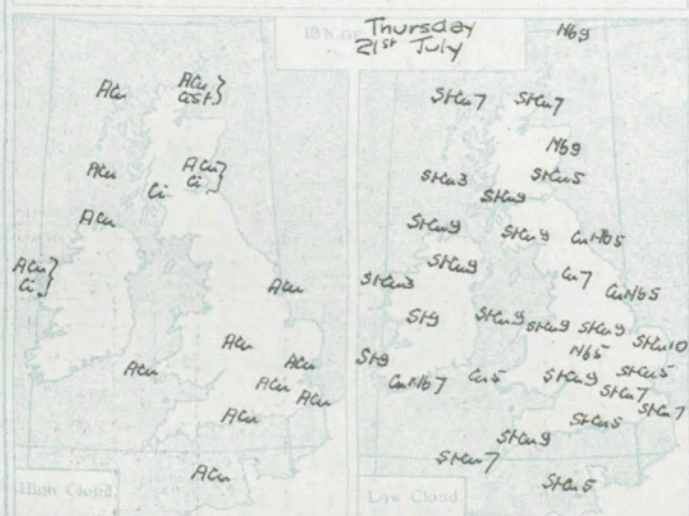 13h. of Thursday
21st July
ACu
ACu }
CiSt }
ACu
ACu }
Ci }
Ci
ACu
ACu }
Ci }
ACu
ACu
ACu
ACu
ACu
ACu
ACu
ACu
High Cloud.
Nb9
StCu7 StCu7
Nb9
StCu3 StCu5
StCu9
StCu9 StCu9 CuNb5
StCu9
StCu3 Cu7
CuNb5
St9 StCu9 StCu9 StCu9
StCu10
Nb5
St9 StCu5
CuNb7 Cu5 StCu9
StCu7
StCu7
StCu5
StCu9
StCu7
StCu5
Low Cloud.